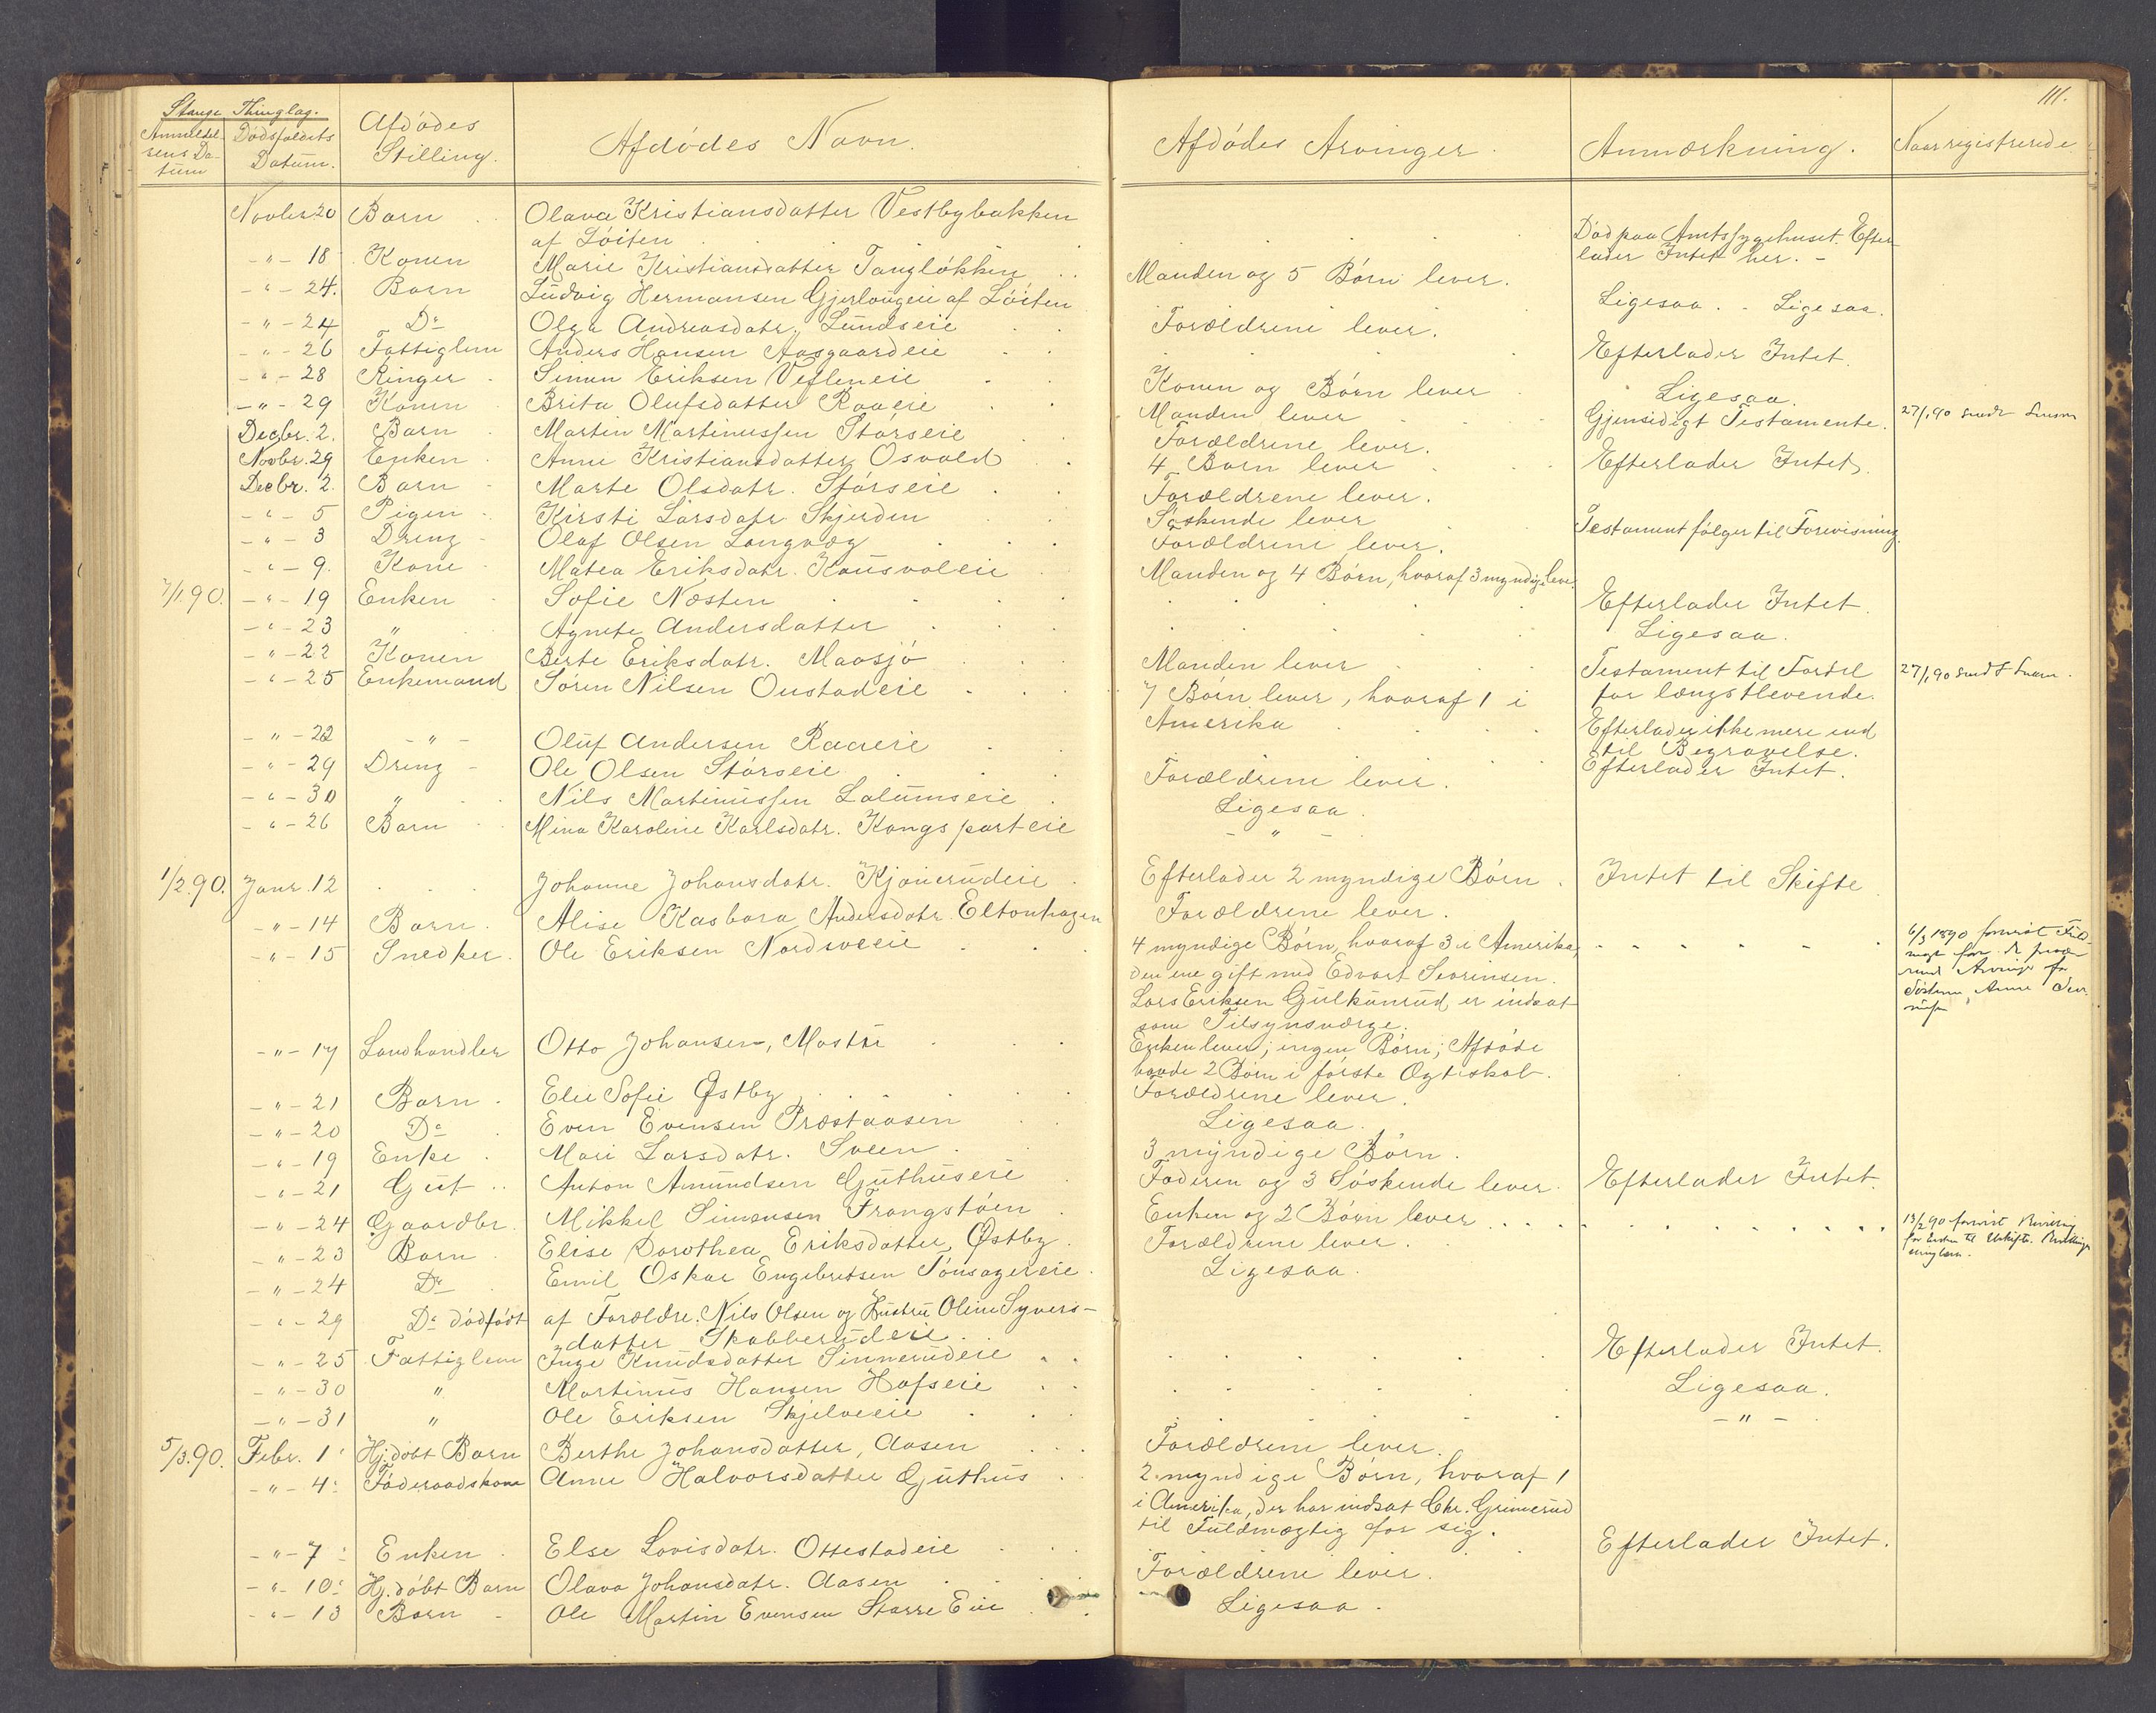 111.
Stange Thinglag.
Anmeldelsens Datum | Dødsfaldets Datum. | Afdødes Stilling. | Afdødes Navn. | Afdødes Arvinger. | Anmærkning. | Naar registrerede
Novbr 20 | Barn | Olava Kristiansdatter Vestbybakken
af Løiten | Død paa Amtssygehuset. Efterlader Intet her. -
-"- 18 | Konen | Marie Kristiansdatter Tangløkken | Manden og 5 Børn lever.
-"- 24. | Barn | Ludvig Hermansen Gjerlougeie af Løiten | Ligesaa. - Ligesaa.
-"- 24 | Do | Olga Andreasdatr. Lundseie | Forældrene lever.
-"- 26 | Fattiglem | Anders Hansen Aasgaardeie | Efterlader Intet.
-"- 28 | Ringer | Simen Eriksen Vefleneie | Konen og Børn lever | Ligesaa.
-"- 29 | Konen | Brita Olufsdatter Raaeie | Manden lever | Gjensidigt Testamente. | 27/1 90 sendt
Decbr. 2. | Barn | Martin Martinussen Størseie | Forældrene lever.
Novbr. 29 | Enken | Anne Kristiansdatter Osvold | 4 Børn lever | Efterlader Intet.
Decbr. 2. | Barn | Marte Olsdatr. Størseie | Forældrene lever.
-"- 5 | Pigen | Kirsti Larsdatr. Skjerden | Søskende lever | Testament følger til Forevisning.
-"- 3 | Dreng | Olaf Olsen Langvæg | Forældrene lever.
-"- 9. | Kone | Matea Eriksdatr. Kausvoleie | Manden og 4 Børn, hvoraf 3 myndige lever.
7/1 90. | -"- 19 | Enken | Sofie Næsten | Efterlader Intet.
-"- 23 | " | Agnete Andersdatter | Ligesaa.
-"- 22 | Konen | Berte Eriksdatr. Maasjø | Manden lever | Testament til Fordel
for længstlevende. | 27/1 90 sendt
-"- 25 | Enkemand | Søren Nilsen Oustadeie | 7 Børn lever, hvoraf 1 i
Amerika
-"- 22 | -"- | Oluf Andersen Raaeie | Efterlader ikke mere end
til Begravelse.
-"- 29 | Dreng | Ole Olsen Størseie | Forældrene lever. | Efterlader Intet.
-"- 30 | " | Nils Martinussen Lalumseie | Ligesaa.
-"- 26 | Barn | Mina Karoline Karlsdatr. Kongsparteie | -"-
1/2.90. | Janr. 12 | Johanne Johansdatr. Kjønerudeie | Efterlader 2 myndige Børn. | Intet til Skifte
-"- 14 | Barn. | Alise Kasbara Andersdatr. Eltonhagen | Forældrene lever.
-"- 15 | Snedker. | Ole Eriksen Nordsveeie | 4 myndige Børn, hvoraf 3 i Amerika,
den ene gift med Edvart Sevrinsen.
Lars Eriksen Gulkunrud er indsat
som Tilsynsværge. | 6/3 1890 forevist
for
Arvinger
Søsteren Anne
-"- 17 | Landhandler | Otto Johansen, Mastu | Enken lever; ingen Børn; Afdøde
havde 2 Børn i første Ægteskab.
-"- 21 | Barn. | Elie Sofie Østby | Forældrene lever.
-"- 20 | Do | Even Evensen Præstaasen | Ligesaa.
-"- 19 | Enke | Mari Larsdatr. Sveen | 3 myndige Børn.
-"- 21 | Gut | Anton Amundsen Guthuseie | Faderen og 3 Søskende lever. | Efterlader Intet.
-"- 24 | Gaardbr. | Mikkel Simensen Frangstøen | Enken og 2 Børn lever | 13/2 90 forevist Bevilling
for Enken til Uskifte.
-"- 23 | Barn | Elise Dorothea Eriksdatter Østby | Forældrene lever.
-"- 24 | Do | Emil Oskar Engebretsen Tønsagereie | Ligesaa.
-"- 29 | Do dødfødt | af Forældre. Nils Olsen og Hustru Oline Syvers-
datter Skabberudeie
-"- 25 | Fattiglem | Inge Knudsdatter Sinnerudeie | Efterlader Intet.
-"- 30 | " | Martinus Hansen Hofseie | Ligesaa.
-"- 31 | " | Ole Eriksen Skjelveeie | -"-
5/3.90. | Febr. 1. | Hj.døbt Barn | Berthe Johansdatter, Aasen | Forældrene lever.
-"- 4. | Føderaadskone | Anne Halvorsdatter Guthus | 2 myndige Børn, hvoraf 1
i Amerika, der har indsat Chr. Grimerud
til Fuldmægtig for sig.
-"- 7 | Enken | Else Lovisdatr. Ottestadeie | Efterlader Intet.
-"- 10 | Hj.døbt Barn | Olava Johansdatr. Aasen | Forældrene lever.
-"- 13 | Barn | Ole Martin Evensen Starre Eie | Ligesaa.